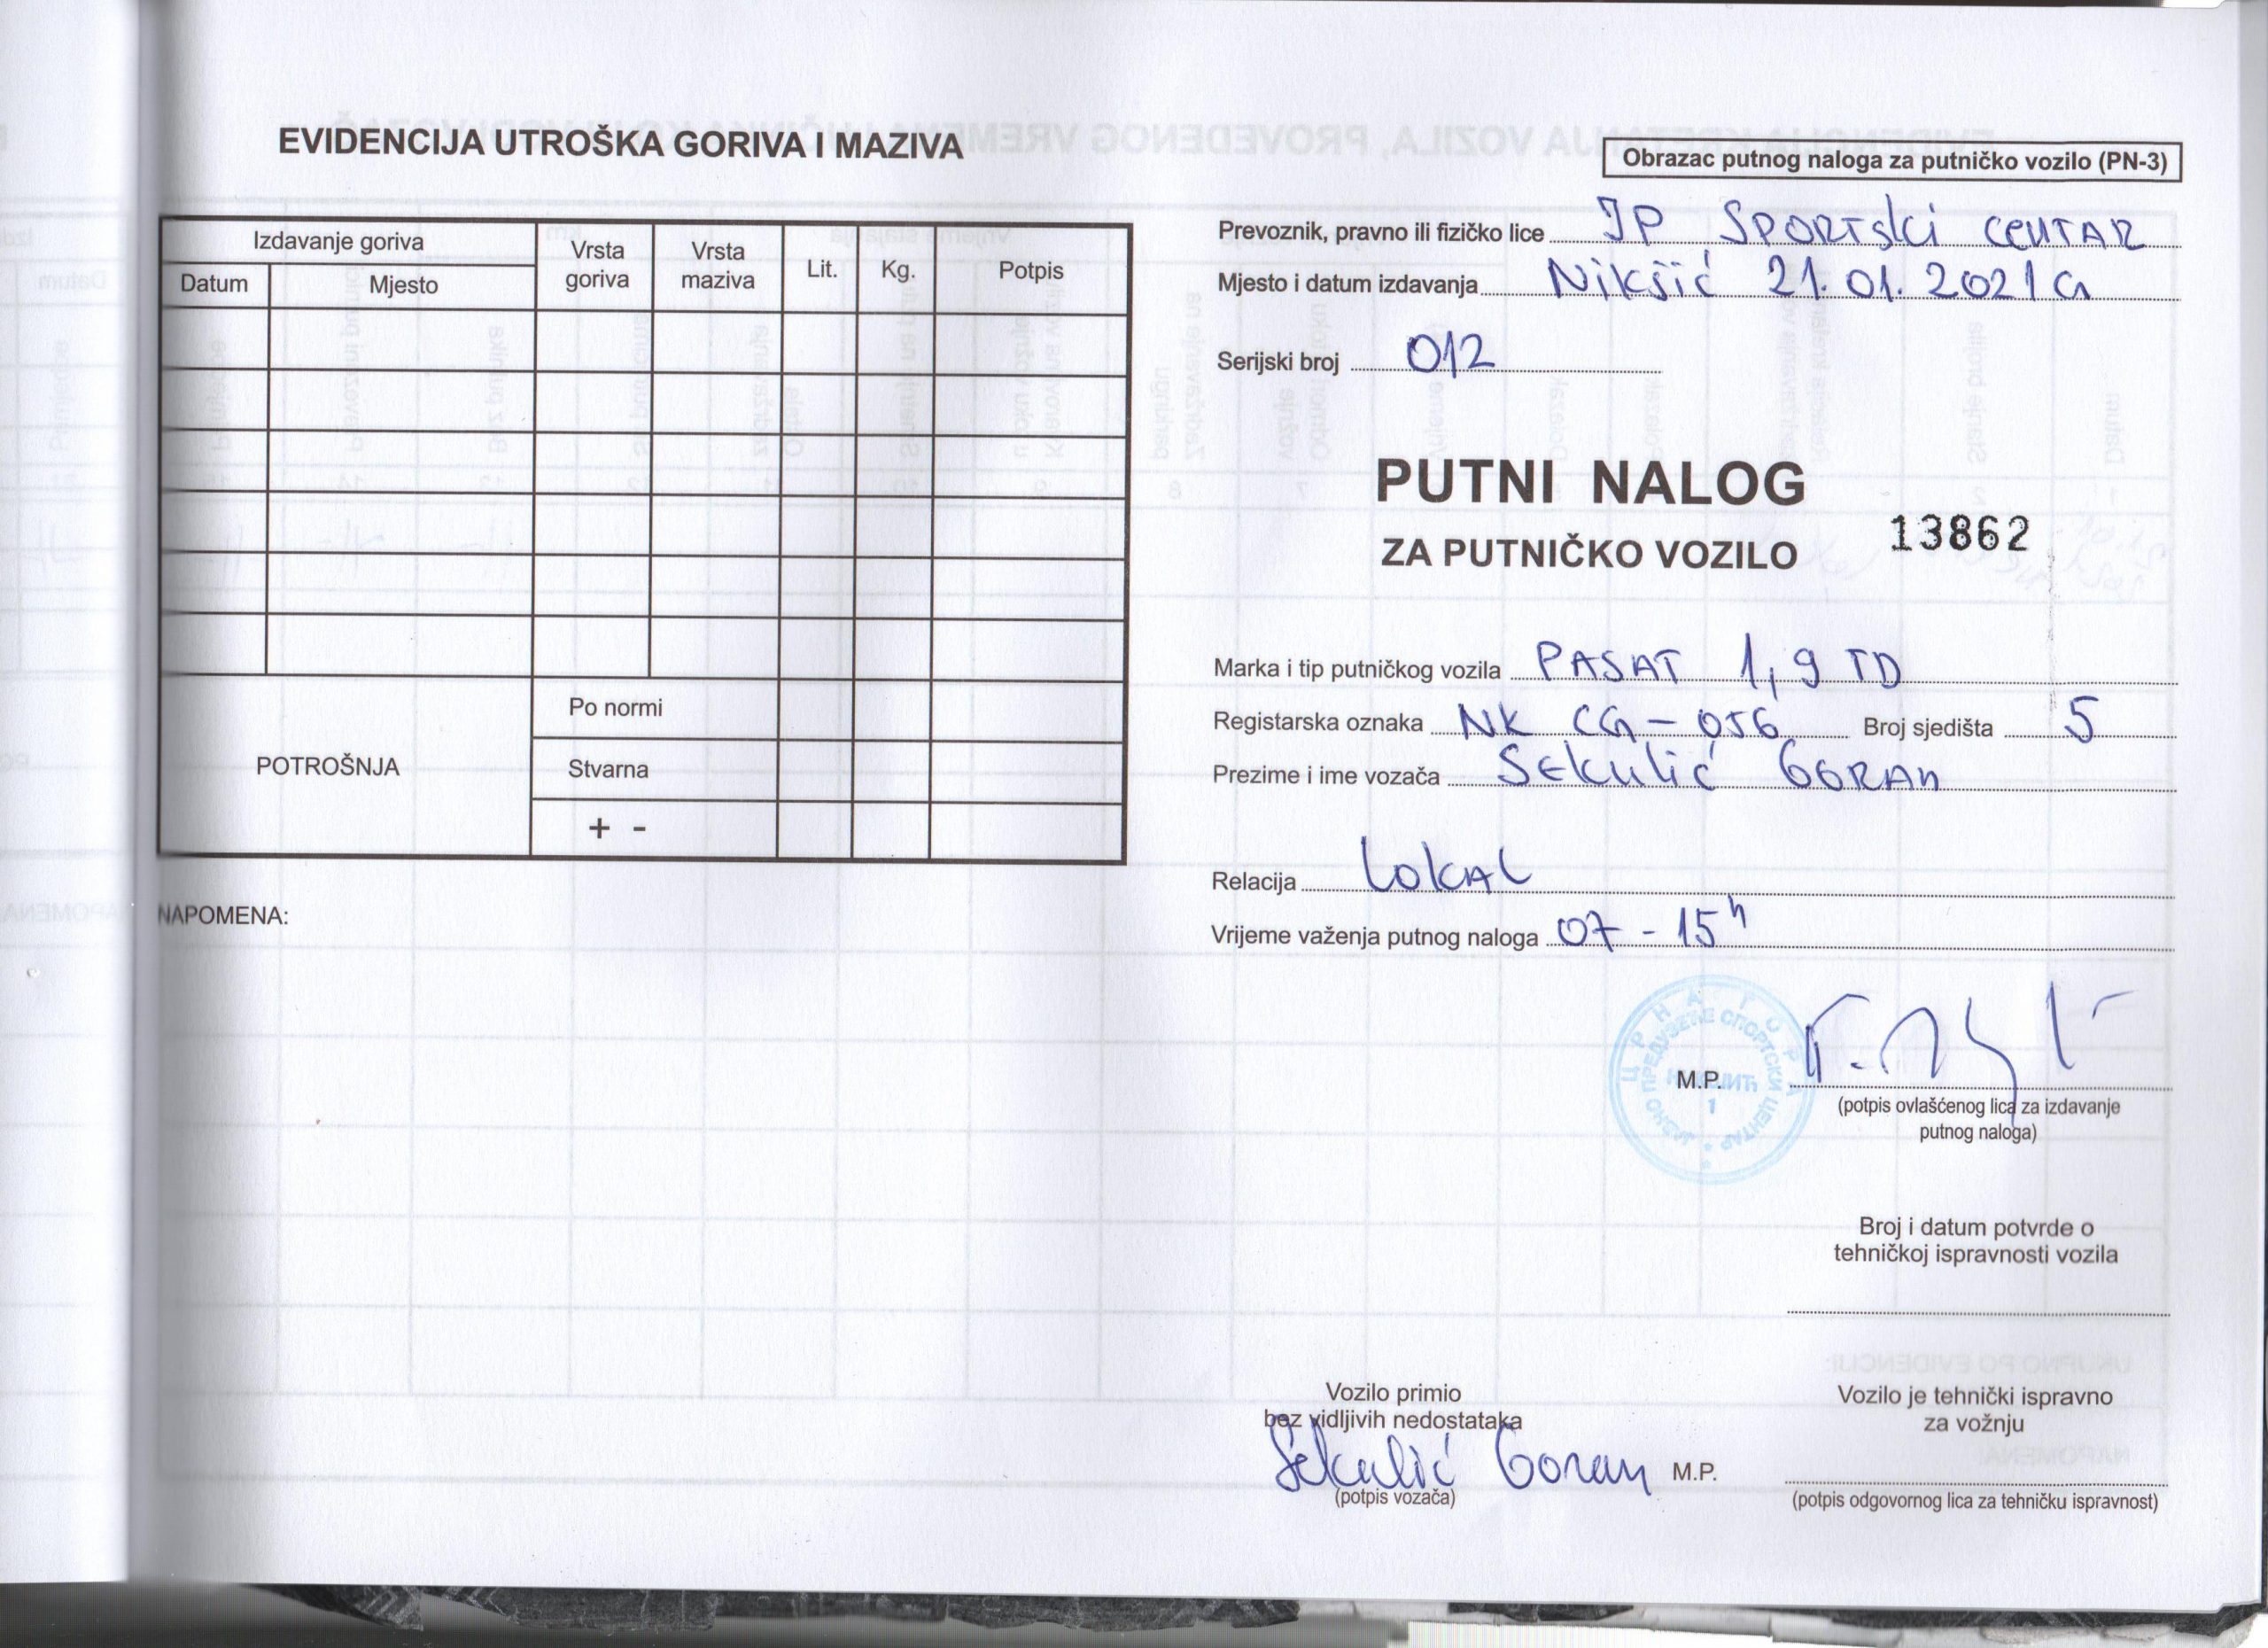 EVIDENCIJA UTROŠKA GORIVA I MAZIVA
Izdavanje goriva
Vrsta goriva
Vrsta maziva
Lit.
Kg.
Potpis
Datum
Mjesto
POTROŠNJA
Po normi
Stvarna
+ -
NAPOMENA:
Obrazac putnog naloga za putničko vozilo (PN-3)
Prevoznik, pravno ili fizičko lice JP SPORTSKI CENTAR
Mjesto i datum izdavanja Nikšić 21.01.2021 G
Serijski broj 012
PUTNI NALOG
ZA PUTNIČKO VOZILO
13862
Marka i tip putničkog vozila PASAT 1,9 TD
Registarska oznaka NK CG-056 Broj sjedišta 5
Prezime i ime vozača Sekulić GORAN
Relacija LOKAL
Vrijeme važenja putnog naloga 07-15h
ЦРНА ГОРА
ПРЕДУЗЕЋЕ СПОРТСКИ ЦЕНТАР
1
M.P.
(potpis ovlašćenog lica za izdavanje
putnog naloga)
Broj i datum potvrde o
tehničkoj ispravnosti vozila
Vozilo primio
bez vidljivih nedostataka
Sekulić Goran
(potpis vozača)
M.P.
Vozilo je tehnički ispravno
za vožnju
(potpis odgovornog lica za tehničku ispravnost)